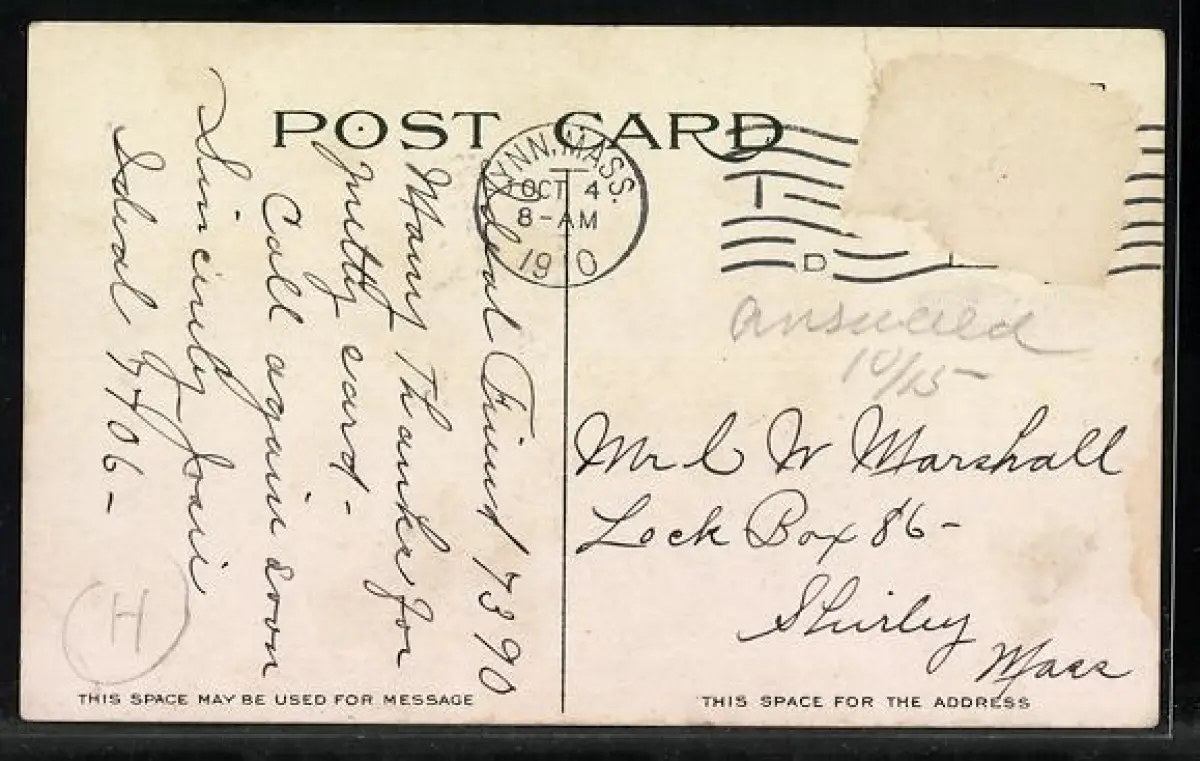 POST CARD
LYNN, MASS.
OCT 4
8-AM
1910
D
Ideal Friend 7390
Many Thanks for
pretty card-
Call again soon
Sincerely
Ideal 7706-
H
answered
10/15-
Mr C W Marshall
Lock Box 86-
Shirley
Mass
THIS SPACE MAY BE USED FOR MESSAGE
THIS SPACE FOR THE ADDRESS